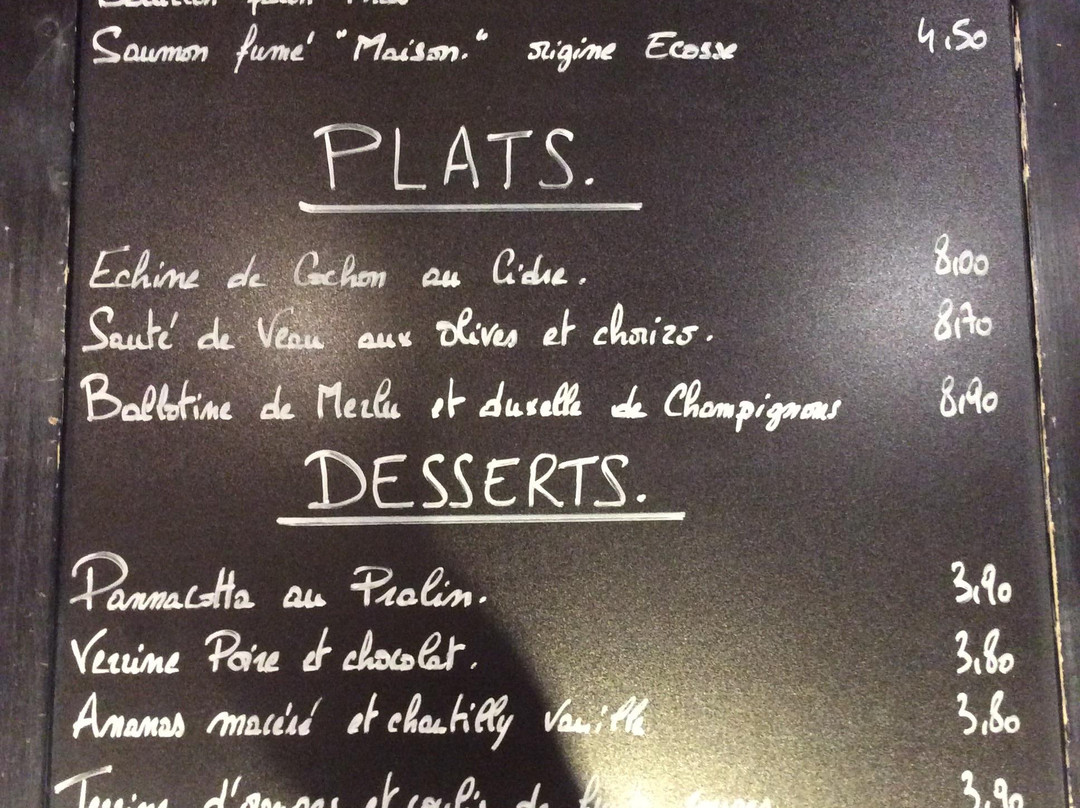 Saumon fumé "Maison." origine Ecosse 4,50
PLATS.
Echine de Cochon au Cidre. 8,00
Sauté de Veau aux olives et chorizo. 8,70
Ballotine de Merlu et duxelle de Champignons 8,90
DESSERTS.
Pannacotta au Pralin. 3,90
Verrine Poire et chocolat. 3,80
Ananas macéré et chantilly vanille 3,80
Terrine d'oranges et coulis de fruits rouges 3,90